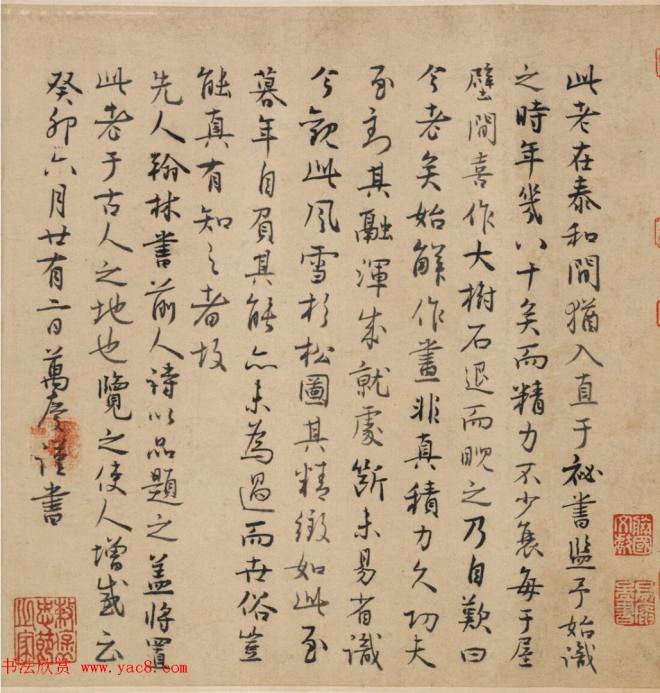 此老在泰和間猶入直于祕書監予始識
之時年幾八十矣而精力不少衰每于屋
壁間喜作大樹石退而睨之乃自歎曰
今老矣始解作畫非真積力久功夫
至到其融渾成就處斷未易省識
今觀此風雪杉松圖其精緻如此至
暮年自負其能亦未為過而世俗豈
能真有知之者故
先人翰林書前人詩以品題之蓋將置
此老于古人之地也覽之使人增感云
癸卯六月廿有二日萬慶謹書
书法欣赏 www.yac8.com